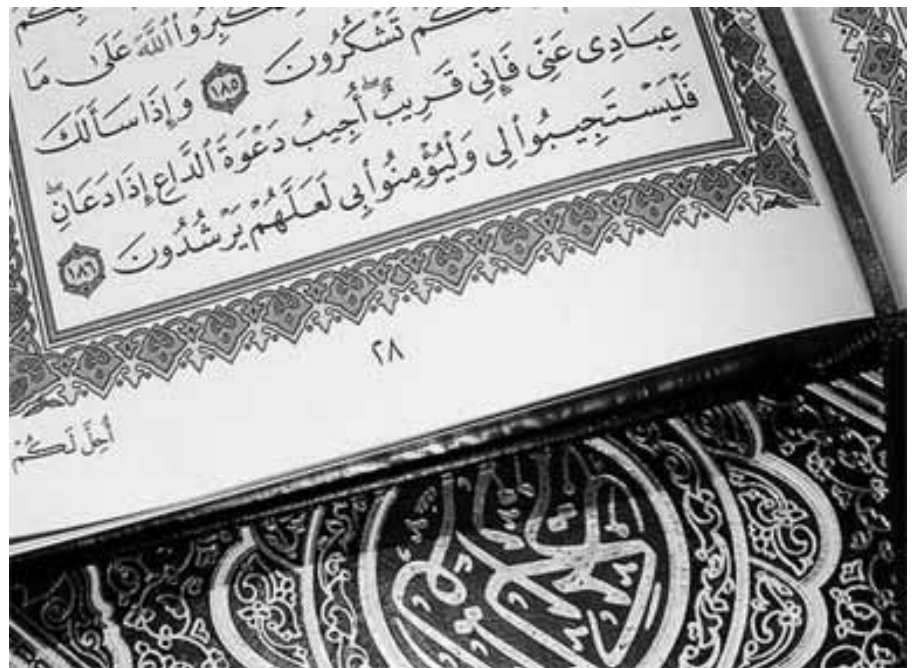 تُكَبِّرُواْ ٱللَّهَ عَلَىٰ مَا
تَشْكُرُونَ ١٨٥ وَإِذَا سَأَلَكَ
عِبَادِى عَنِّى فَإِنِّى قَرِيبٌ ۖ أُجِيبُ دَعْوَةَ ٱلدَّاعِ إِذَا دَعَانِ ۖ
فَلْيَسْتَجِيبُوا۟ لِى وَلْيُؤْمِنُوا۟ بِى لَعَلَّهُمْ يَرْشُدُونَ ١٨٦
٢٨
أُحِلَّ لَكُمْ